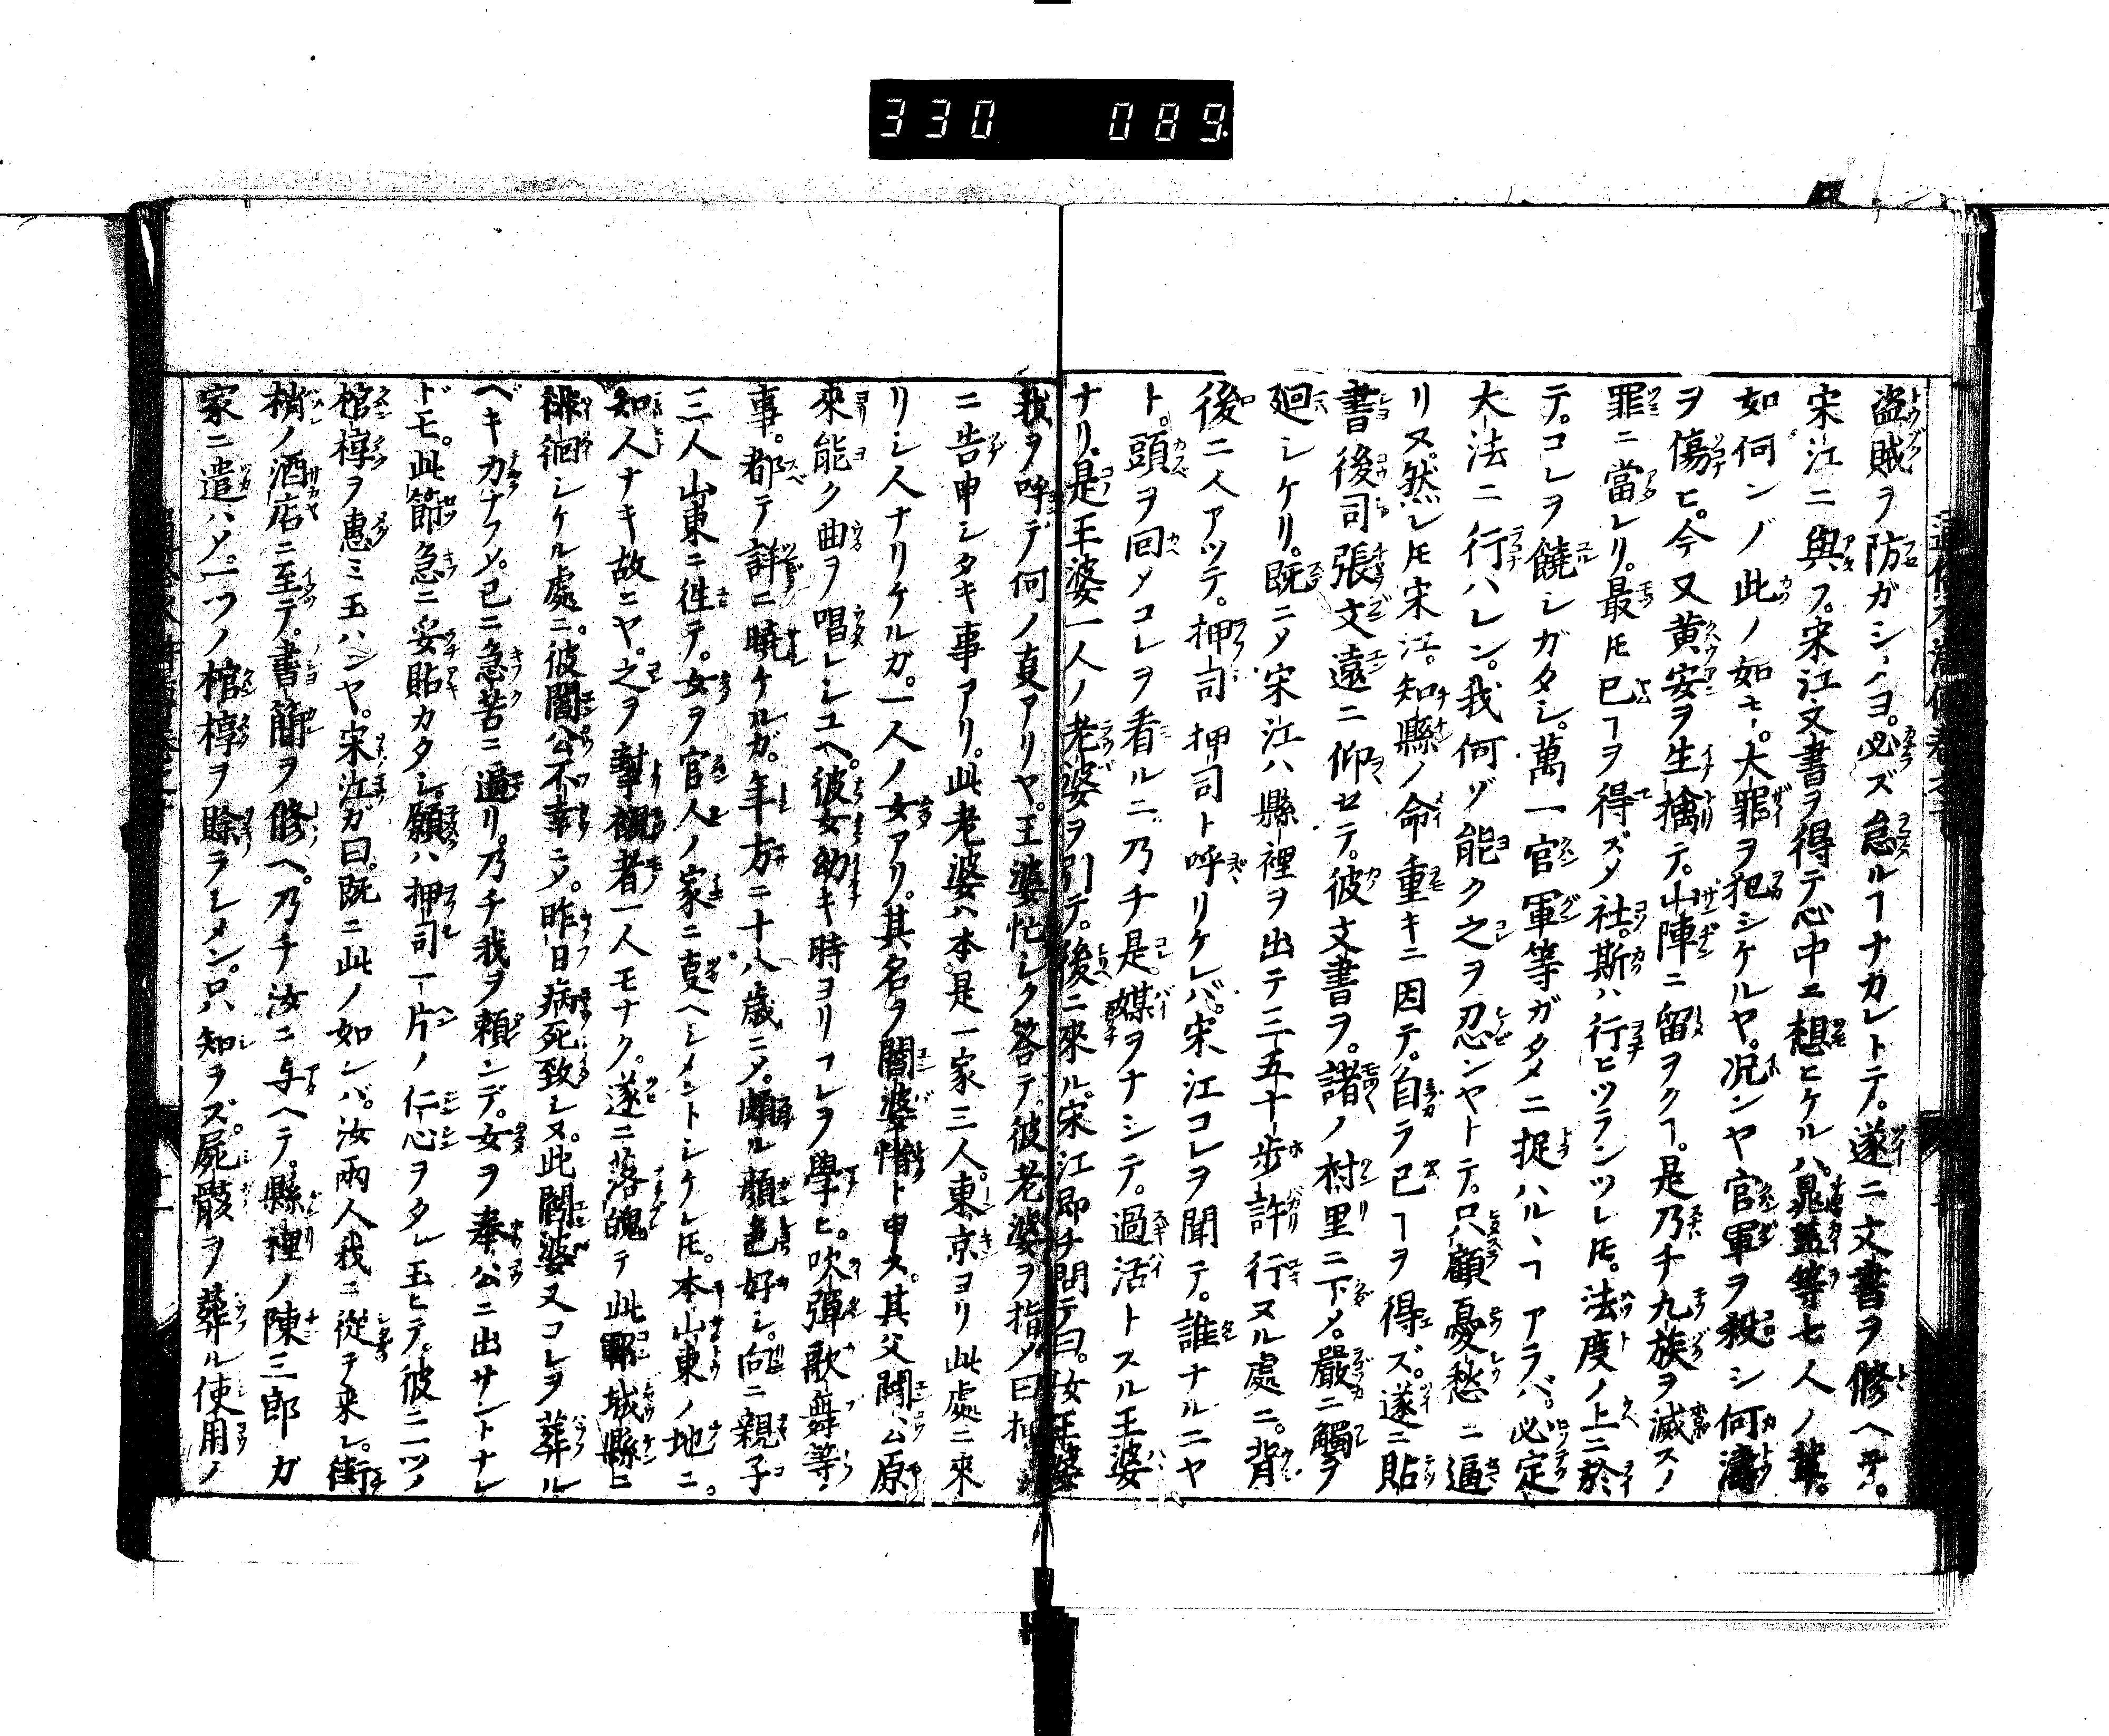 330 089
盗賊ヲ防ガシメヨ。必ズ怠ルヿナカレトテ。遂ニ文書ヲ修ヘテ。
宋江ニ與フ。宋江文書ヲ得テ心中ニ想ヒケルハ。晁蓋等七人ノ輩。
如何ンゾ此ノ如キ。大罪ヲ犯シケルヤ。况ンヤ官軍ヲ殺シ何濤
ヲ傷ヒ。今又黄安ヲ生擒テ。山陣ニ留ヲクヿ。是乃チ九族ヲ滅スノ
罪ニ當レリ。最𪜈已ヿヲ得ズメ社。斯ハ行ヒツランツレ𪜈。法度ノ上ニ於
テ。コレヲ饒シガタシ。萬一官軍等ガタメニ捉ハルヽヿアラバ。必定
大法ニ行ハレン。我何ゾ能ク之ヲ忍ンヤトテ。只顧憂愁ニ逼
リヌ。然レ𪜈宋江。知縣ノ命重キニ因テ。自ラ已ヿヲ得ズ。遂ニ貼
書後司張文遠ニ仰セテ。彼文書ヲ。諸ノ村里ニ下メ。嚴ニ觸ヲ
廻シケリ。既ニメ宋江ハ縣裡ヲ出テ三五十歩許行ヌル處ニ。背
後ニ人アツテ。押司押司ト呼リケレバ。宋江コレヲ聞テ。誰ナルニヤ
ト。頭ヲ回メコレヲ看ルニ。乃チ是媒ヲナシテ。過活トスル王婆
ナリ。是王婆一人ノ老婆ヲ引テ。後ニ來ル。宋江即チ問テ曰。汝王婆
我ヲ呼デ何ノ事アリヤ。王婆忙シク答テ。彼老婆ヲ指メ曰押司
ニ告申シタキ事アリ。此老婆ハ本是一家三人東京ヨリ此處ニ來
リシ人ナリケルガ。一人ノ女アリ。其名ヲ閻婆惜ト申ス。其父閻公原
來能ク曲ヲ唱レシユヘ。彼女幼キ時ヨリコレヲ學ヒ。吹彈歌舞等ノ
事。都テ詳ニ曉ケルガ。年方ニ十八歳ニメ。頗ル顔色好シ。向ニ親子
三人山東ニ徃テ。女ヲ官人ノ家ニ事ヘシメントシケレ𪜈。本山東ノ地ニ。
知人ナキ故ニヤ。之ヲ幇襯者一人モナク。遂ニ落魄テ此鄆城縣ニ
徘徊シケル處ニ。彼閻公不幸ニメ。昨日病死致レヌ。此閻婆又コレヲ葬ル
ベキ力ナフメ。已ニ急苦ニ逼リ。乃チ我ヲ頼ンデ。女ヲ奉公ニ出サントナレ
ドモ。此節急ニ安貼カタシ。願ハ押司一片ノ仁心ヲタレ玉ヒテ。彼ニ一ツノ
棺椁ヲ惠ミ玉ハンヤ。宋江ガ曰。既ニ此ノ如ンバ。汝兩人我ニ從テ来レ。街
梢ノ酒店ニ至テ。書簡ヲ修ヘ。乃チ汝ニ与ヘテ。縣裡ノ陳三郎ガ
家ニ遣ハメ。一ツノ棺椁ヲ賒ラレメン。只知ラズ。屍骸ヲ葬ル使用ノ